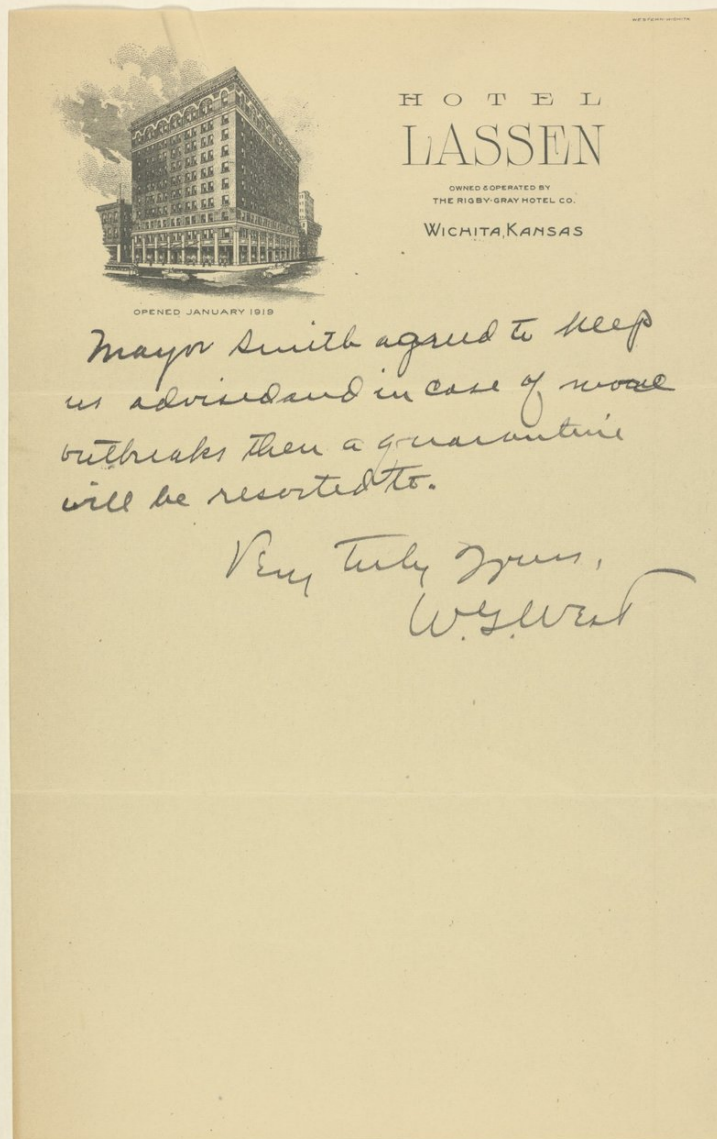 WESTERN WICHITA
HOTEL
LASSEN
OWNED & OPERATED BY
THE RIGBY-GRAY HOTEL CO.
WICHITA, KANSAS
OPENED JANUARY 1919
Mayor Smith agreed to keep
us advised and in case of more
outbreaks then a quarantine
will be resorted to.
Very Truly Yours,
W.G. West